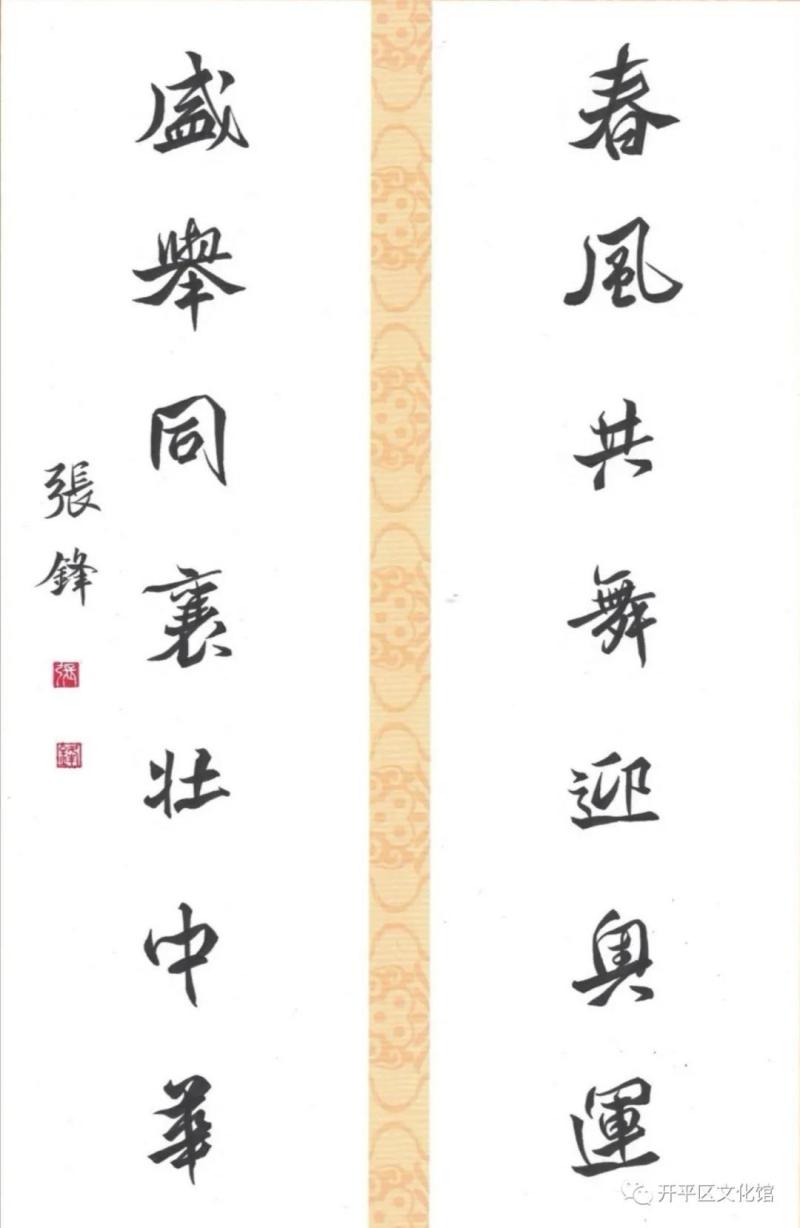 春風共舞迎奥運
盛舉同襄壯中華
張鋒
張
鋒
开平区文化馆